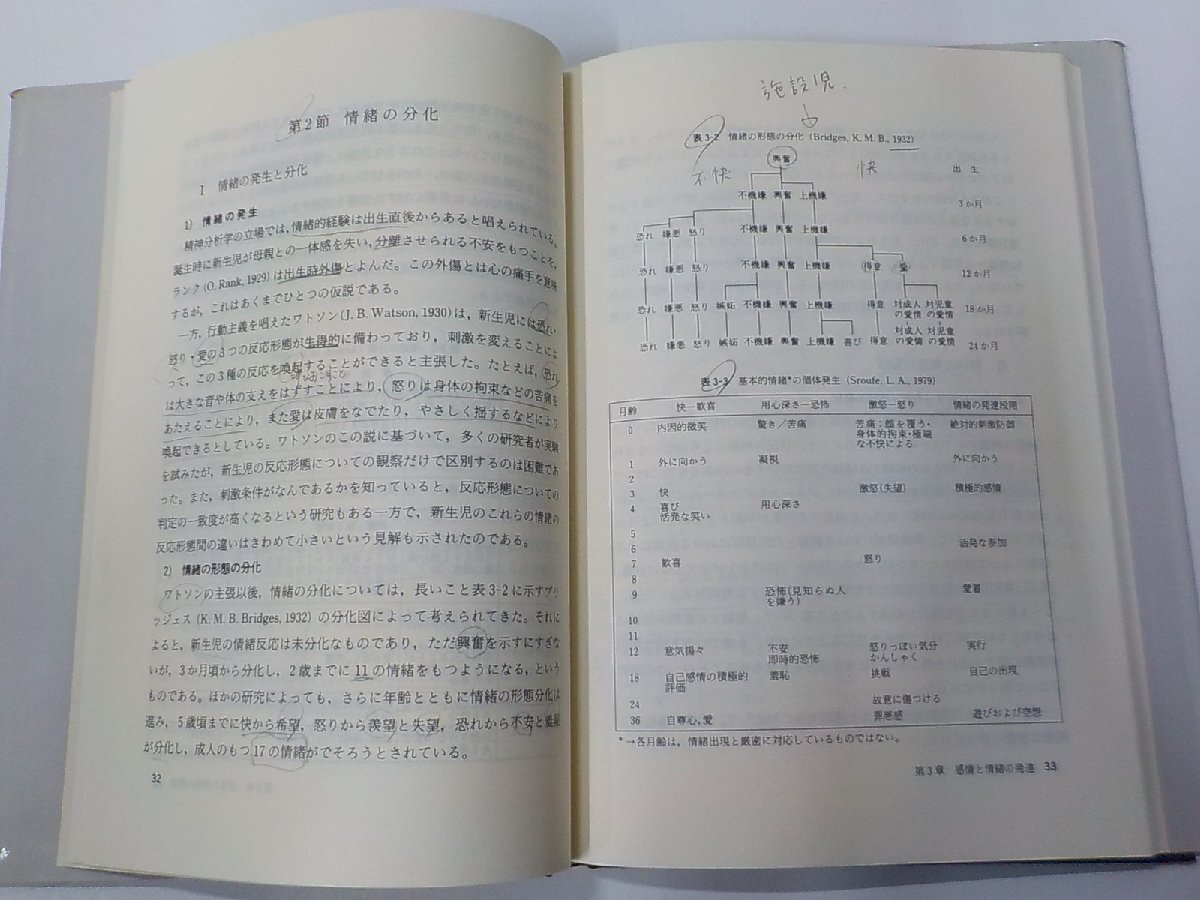 第2節 情緒の分化
I 情緒の発生と分化
1) 情緒の発生
精神分析学の立場では,情緒的経験は出生直後からあると唱えられている。
誕生時に新生児が母親との一体感を失い,分離させられる不安をもつことを,
ランク(O. Rank, 1929)は出生時外傷とよんだ。この外傷とは心の痛手を意味
するが,これはあくまでひとつの仮説である。
一方,行動主義を唱えたワトソン(J. B. Watson, 1930)は,新生児には恐れ・
怒り・愛の3つの反応形態が生得的に備わっており,刺激を変えることによ
って,この3種の反応を喚起することができると主張した。たとえば,恐れ
は大きな音や体の支えをはずすことにより,怒りは身体の拘束などの苦痛を
あたえることにより,また愛は皮膚をなでたり,やさしく揺するなどにより
喚起できるとしている。ワトソンのこの説に基づいて,多くの研究者が実験
を試みたが,新生児の反応形態についての観察だけで区別するのは困難であ
った。また,刺激条件がなんであるかを知っていると,反応形態についての
判定の一致度が高くなるという研究もある一方で,新生児のこれらの情緒の
反応形態間の違いはきわめて小さいという見解も示されたのである。
2) 情緒の形態の分化
ワトソンの主張以後,情緒の分化については,長いこと表3-2に示すブリ
ッジェス(K. M. B. Bridges, 1932)の分化図によって考えられてきた。それに
よると,新生児の情緒反応は未分化なものであり,ただ興奮を示すにすぎな
いが,3か月頃から分化し,2歳までに11の情緒をもつようになる,という
ものである。ほかの研究によっても,さらに年齢とともに情緒の形態分化は
進み,5歳頃までに快から希望,怒りから羨望と失望,恐れから不安と羞恥
が分化し,成人のもつ17の情緒がでそろうとされている。
32
施設児.
表3-2 情緒の形態の分化(Bridges, K. M. B., 1932)
不快 興奮 快 出生
不機嫌 興奮 上機嫌 3か月
恐れ 嫌悪 怒り 不機嫌 興奮 上機嫌 6か月
恐れ 嫌悪 怒り 不機嫌 興奮 上機嫌 得意 愛 12か月
恐れ 嫌悪 怒り 嫉妬 不機嫌 興奮 上機嫌 得意 対成人の愛情 対児童の愛情 18か月
恐れ 嫌悪 怒り 嫉妬 不機嫌 興奮 上機嫌 喜び 得意 対成人の愛情 対児童の愛情 24か月
表3-3 基本的情緒*の個体発生(Sroufe, L. A., 1979)
月齢 快―歓喜 用心深さ―恐怖 激怒―怒り 情緒の発達段階
0 内因的微笑 驚き/苦痛 苦痛:顔を覆う・ 絶対的刺激防御
身体的拘束・極端
な不快による
1 外に向かう 凝視 外に向かう
2
3 快 激怒(失望) 積極的感情
4 喜び 用心深さ
活発な笑い
5
6 活発な参加
7 歓喜 怒り
8
9 恐怖(見知らぬ人 愛着
を嫌う)
10
11
12 意気揚々 不安 怒りっぽい気分 実行
即時的恐怖 かんしゃく
18 自己感情の積極的 羞恥 挑戦 自己の出現
評価
24 故意に傷つける
36 自尊心,愛 罪悪感 遊びおよび空想
*→各月齢は,情緒出現と厳密に対応しているものではない。
第3章 感情と情緒の発達 33